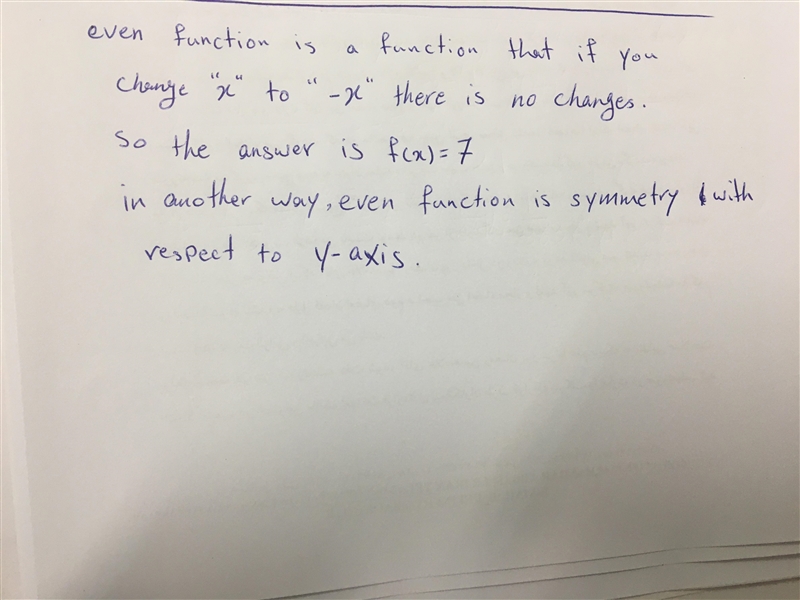 even function is a function that if you
change "x" to "-x" there is no changes.
So the answer is f(x)=7
in another way, even function is symmetry with
respect to y-axis.